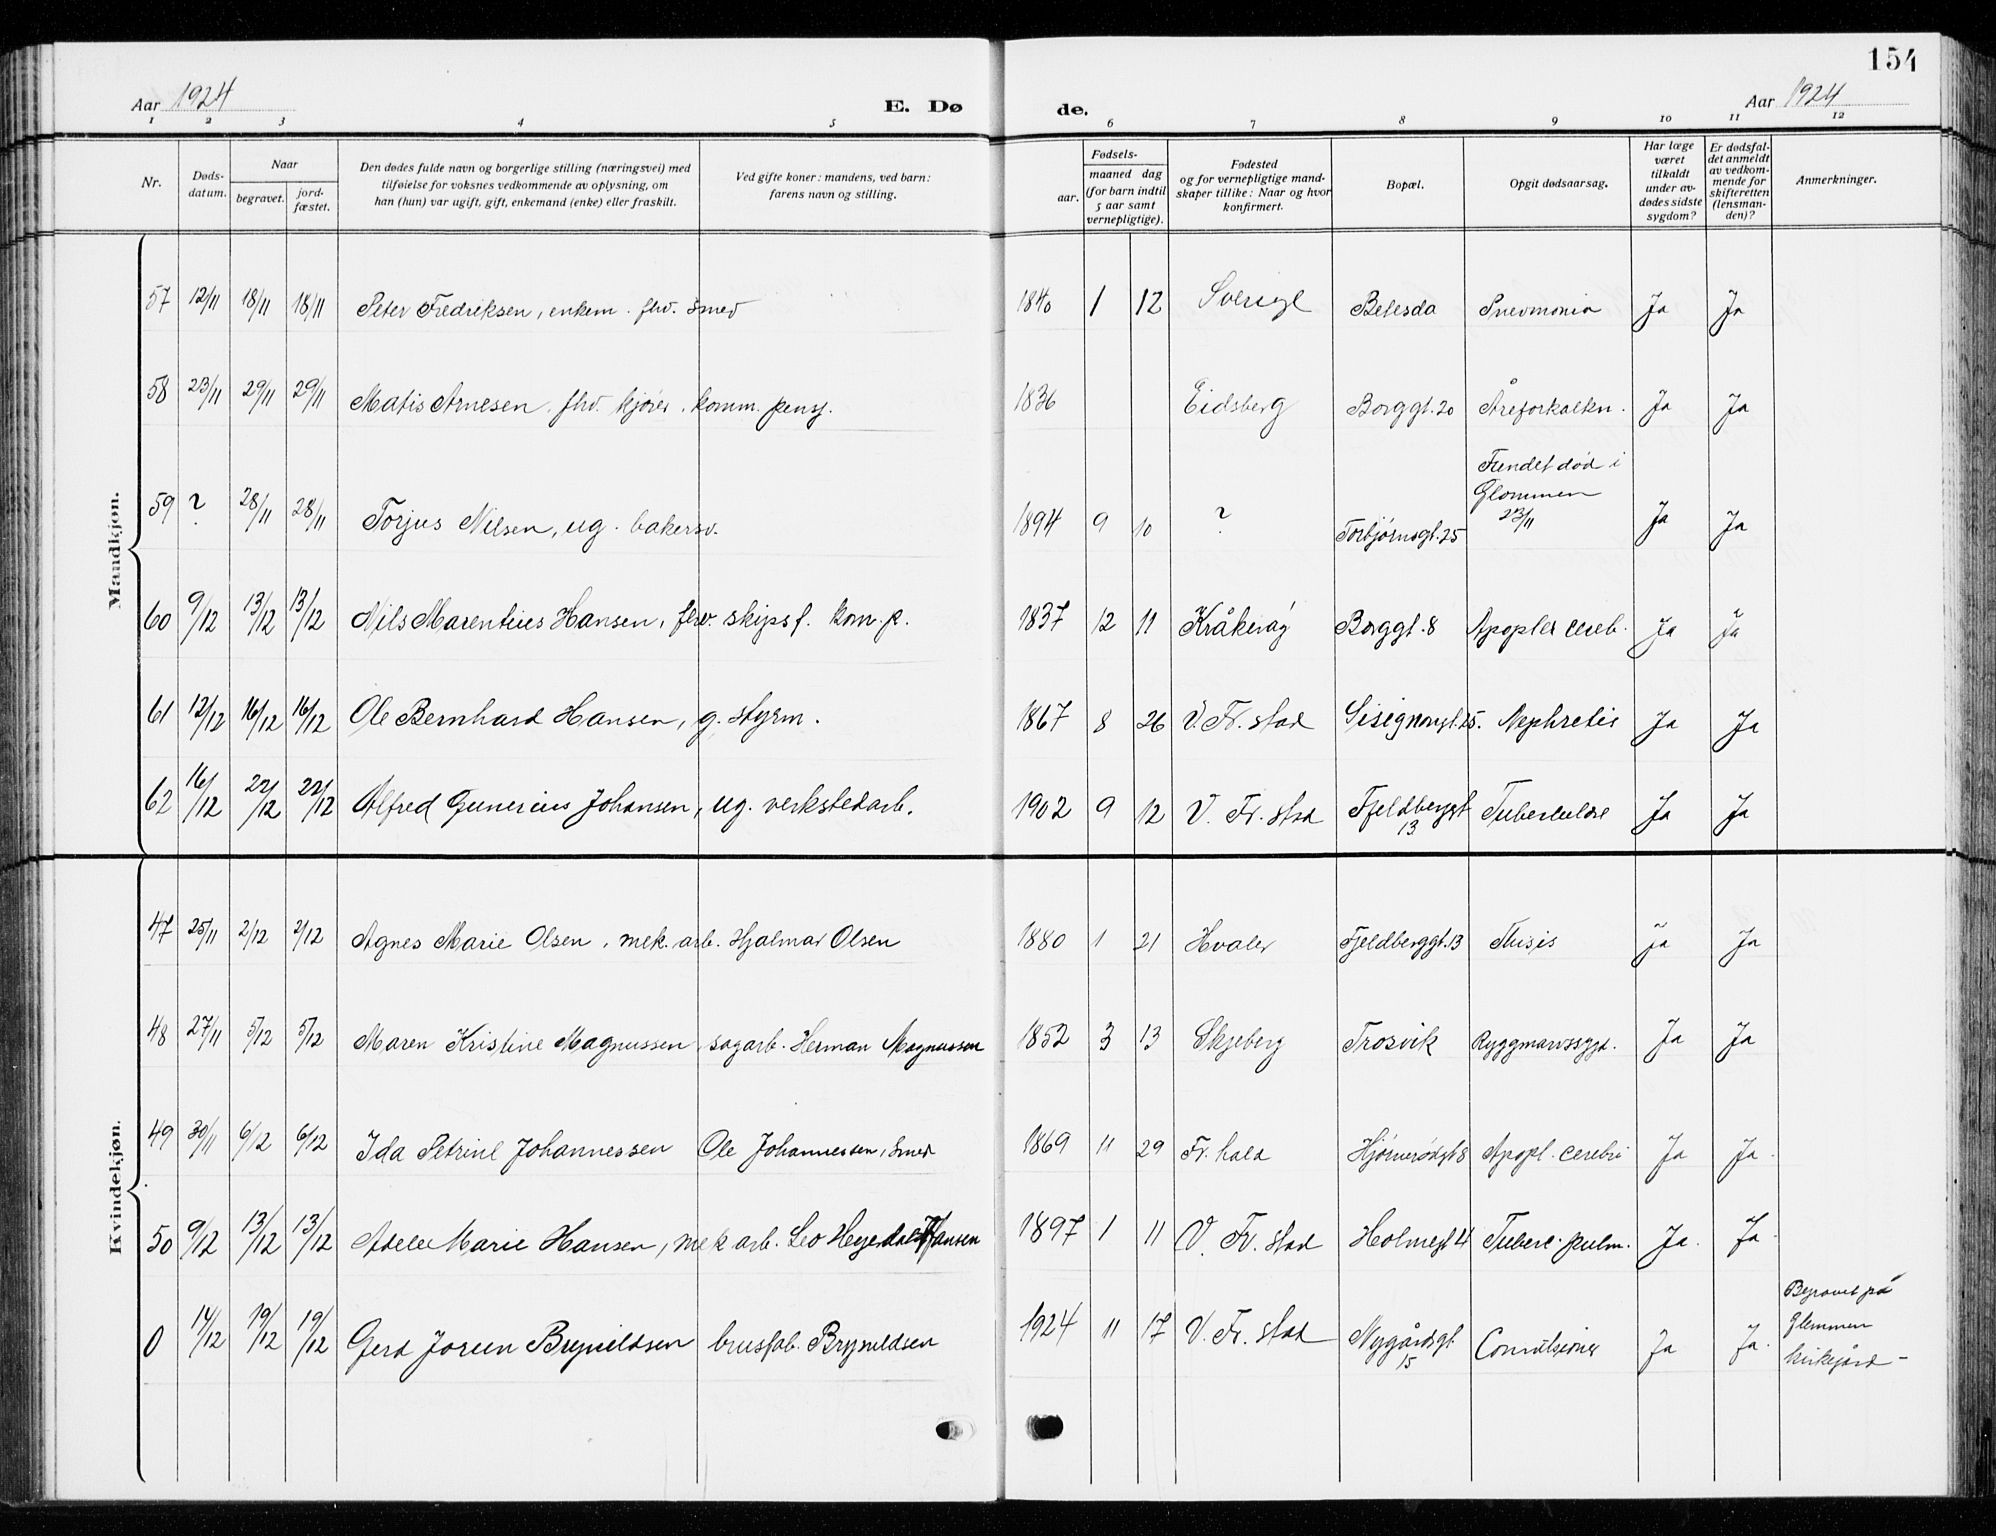 154
Aar 1924 E. Døde. Aar 1924
1 2 3 4 5 6 7 8 9 10 11 12
Nr.
Døds-
datum.
Naar
begravet.
jord-
fæstet.
Den dødes fulde navn og borgerlige stilling (næringsvei) med
tilføielse for voksnes vedkommende av oplysning, om
han (hun) var ugift, gift, enkemand (enke) eller fraskilt.
Ved gifte koner: mandens, ved barn:
farens navn og stilling.
Fødsels-
aar.
maaned dag
(for barn indtil
5 aar samt
vernepligtige).
Fødested
og for vernepligtige mand-
skaper tillike: Naar og hvor
konfirmert.
Bopæl.
Opgit dødsaarsag.
Har læge
været
tilkaldt
under av-
dødes sidste
sygdom?
Er dødsfal-
det anmeldt
av vedkom-
mende for
skifteretten
(lensman-
den)?
Anmerkninger.
Mandkjøn.
57 12/11 18/11 18/11 Peter Fredriksen, enkem. fhv. Smed 1840 1 12 Sverige Betesda Pneumonia Ja Ja
58 23/11 29/11 29/11 Matis Arnesen, fhv. kjører, komm. pensj. 1836 Eidsberg Borggt. 20 Åreforkalkn. Ja Ja
59 ? 28/11 28/11 Torjus Nilsen, ug. bakersv. 1894 9 10 ? Torbjørnsgt. 25 Fundet død i
Glommen
23/11 Ja Ja
60 9/12 13/12 13/12 Nils Marentius Hansen, fhv. skipsf. kom. p. 1837 12 11 Kråkerøy Borggt. 8 Apoplex cereb. Ja Ja
61 12/12 16/12 16/12 Ole Bernhard Hansen, g. styrm. 1867 8 26 V. Fr. stad 25. Nephretis Ja Ja
62 16/12 22/12 22/12 Alfred Gunerius Johansen, ug. verkstedarb. 1902 9 12 V. Fr. stad Fjeldberggt
13 Tuberkulose Ja Ja
Kvindekjøn.
47 25/11 2/12 2/12 Agnes Marie Olsen, mek. arb. Hjalmar Olsen 1880 1 21 Hvaler Fjeldberggt. 13 Thisis Ja Ja
48 27/11 5/12 5/12 Maren Kristine Magnussen, sagarb. Herman Magnussen 1852 3 13 Skjeberg Trosvik Ryggmarvssygd. Ja Ja
49 30/11 6/12 6/12 Ida Petrine Johannessen Ole Johannessen, Smed 1869 11 29 Fr. hald Hjørnerødgt 8 Apopl. cerebri Ja Ja.
50 9/12 13/12 13/12 Adele Marie Hansen, mek arb. Leo Heyerdal Hansen 1897 1 11 V. Fr. stad Holmegt 4 Tuberc. pulm. Ja. Ja.
0 14/12 19/12 19/12 Gerd Jorun Brynildsen brusfab. Brynildsen 1924 11 17 V. Fr. stad Nygårdsgt
15 Convulsioner Ja Ja. Begravet på
Glemmen
kirkegård –